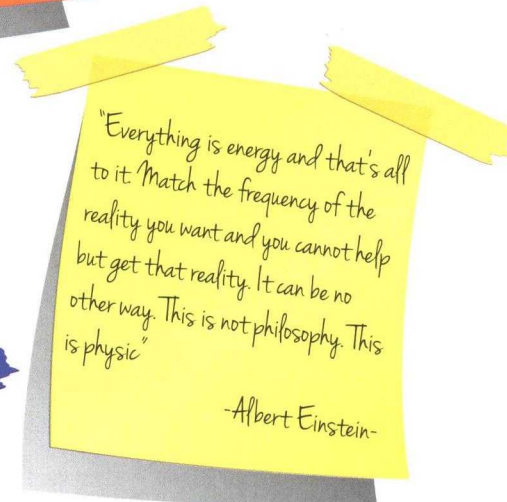 "Everything is energy and that's all
to it. Match the frequency of the
reality you want and you cannot help
but get that reality. It can be no
other way. This is not philosophy. This
is physic"
-Albert Einstein-